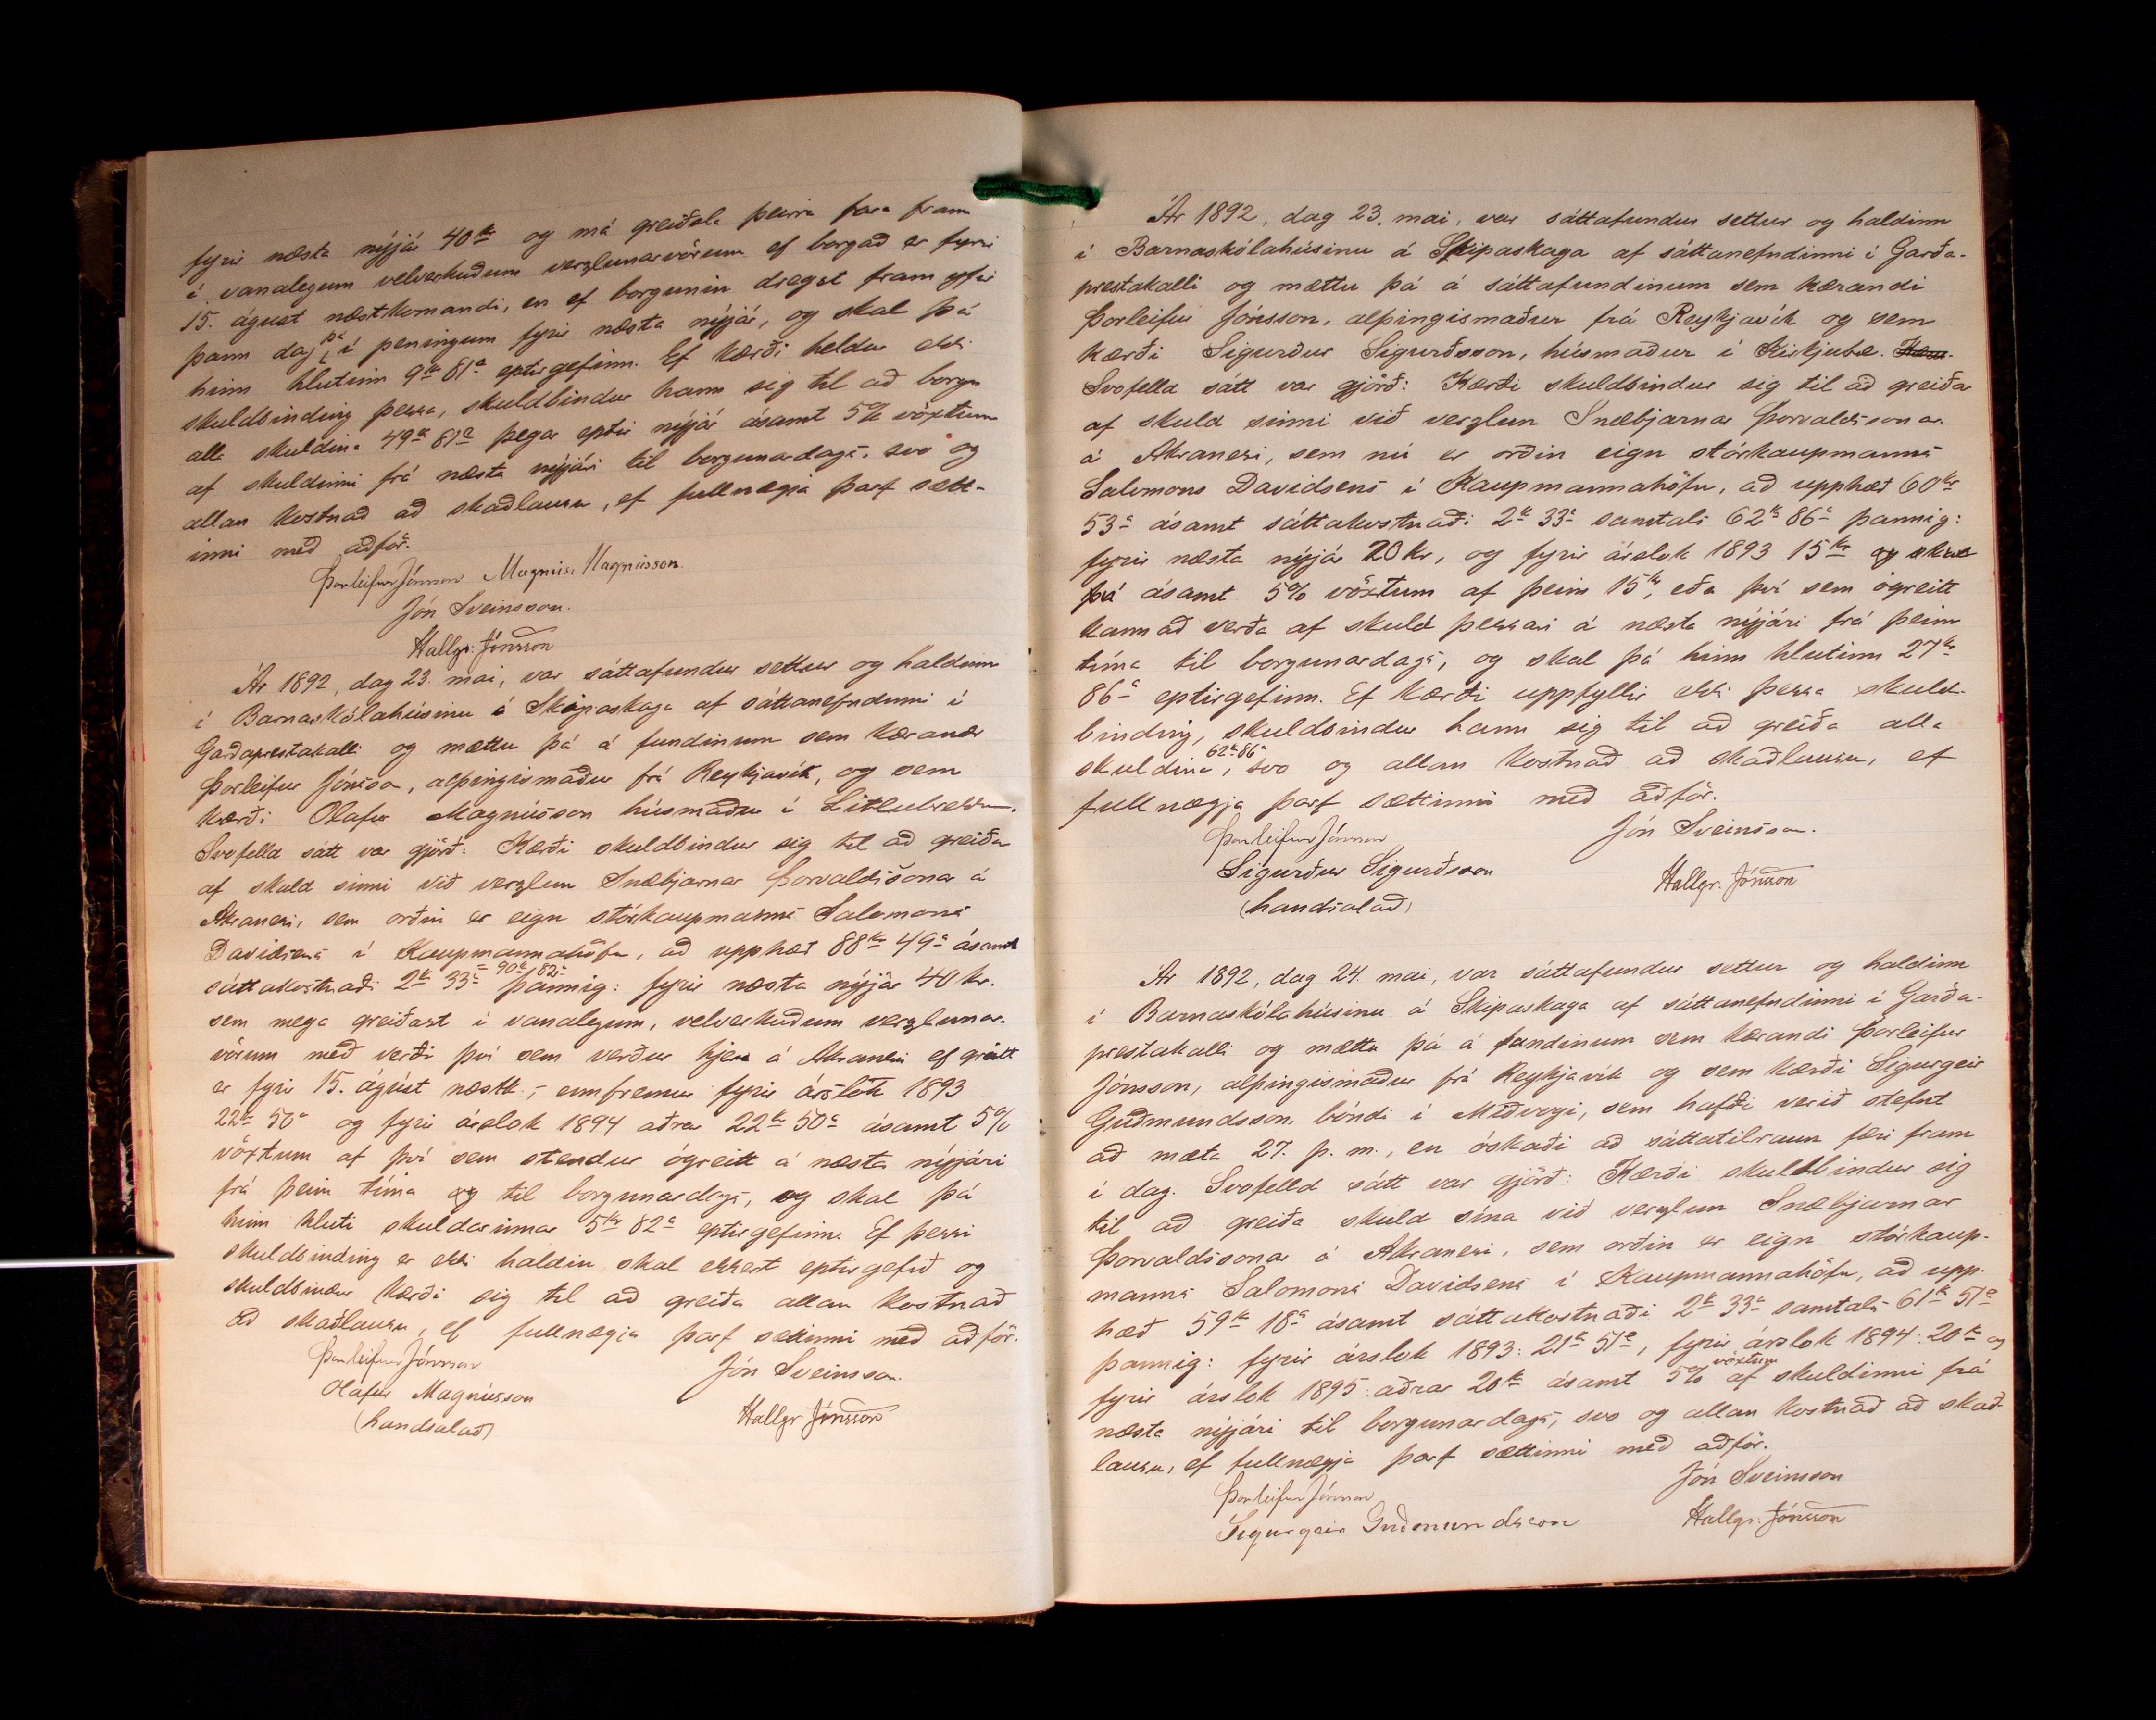 fyrir næsta nýjár 40 kr og má greiðsla þeirra fara fram
í vanalegum velverkuðum verzlunarvörum ef borgað er fyrir
15. ágúst næstkomandi, en ef borgunin dregst fram yfir
þann dag, þá í peningum fyrir næsta nýjár, og skal þá
hinn hlutinn 9 kr 81 a eptirgefinn. Ef kærði heldur ekki
skuldbinding þessa, skuldbindur hann sig til að borga
alla skuldina 49 kr 81 a þegar eptir nýjár ásamt 5% vöxtum
af skuldinni frá næsta nýjári til borgunardags, svo og
allan kostnað að skaðlausu, ef fullnægja þarf sætt-
inni með aðför.
Þorleifur Jónsson Magnús Magnússon.
Jón Sveinsson.
Hallgr. Jónsson
Ár 1892, dag 23. mai, var sáttafundur settur og haldinn
í Barnaskólahúsinu á Skipaskaga af sáttanefndinni í
Garðaprestakalli og mættu þá á fundinum sem kærandi
Þorleifur Jónsson, alþingismaður frá Reykjavík, og sem
kærði Olafur Magnússon húsmaður í
Svofelld sátt var gjörð: Kærði skuldbindur sig til að greiða
af skuld sinni við verzlun Snæbjarnar Þorvaldssonar á
Akranesi, sem orðin er eign stórkaupmanns Salomons
Davidsens í Kaupmannahöfn, að upphæð 88 kr 49 a ásamt
sáttakostnaði 2 kr 33 a = 90 kr 82 a þannig: fyrir næsta nýjár 40 kr.
sem mega greiðast í vanalegum, velverkuðum verzlunar-
vörum með verði því sem verður hjer á Akranesi ef greitt
er fyrir 15. ágúst næstk., ennfremur fyrir árslok 1893
22 kr 50 a og fyrir árslok 1894 aðrar 22 kr 50 a ásamt 5%
vöxtum af því sem stendur ógreitt á næsta nýjári
frá þeim tíma og til borgunardags, og skal þá
hinn hluti skuldarinnar 5 kr 82 a eptirgefinn. Ef þessi
skuldbinding er ekki haldin skal ekkert eptirgefið og
skuldbindur kærði sig til að greiða allan kostnað
að skaðlausu, ef fullnægja þarf sættinni með aðför.
Þorleifur Jónsson Jón Sveinsson.
Olafur Magnússon Hallgr Jónsson
(handsalað)
Ár 1892, dag 23. mai, var sáttafundur settur og haldinn
í Barnaskólahúsinu á Skipaskaga af sáttanefndinni í Garða-
prestakalli og mættu þá á sáttafundinum sem kærandi
Þorleifur Jónsson, alþingismaður frá Reykjavík og sem
kærði Sigurður Sigurðsson, húsmaður í Kirkjubæ.
Svofelld sátt var gjörð: Kærði skuldbindur sig til að greiða
af skuld sinni við verzlun Snæbjarnar Þorvaldssonar
á Akranesi, sem nú er orðin eign stórkaupmanns
Salomons Davidsens í Kaupmannahöfn, að upphæð 60 kr
53 a ásamt sáttakostnaði 2 kr 33 a samtals 62 kr 86 a þannig:
fyrir næsta nýjár 20 kr, og fyrir árslok 1893 15 kr og skal
þá ásamt 5% vöxtum af þeim 15 kr, eða því sem ógreitt
kann að verða af skuld þessari á næsta nýjári frá þeim
tíma til borgunardags, og skal þá hinn hlutinn 27 kr
86 a eptirgefinn. Ef kærði uppfyllir ekki þessa skuld-
binding, skuldbindur hann sig til að greiða alla
skuldina 62 kr 86 a, svo og allan kostnað að skaðlausu, ef
fullnægja þarf sættinni með aðför.
Þorleifur Jónsson Jón Sveinsson.
Sigurður Sigurðsson Hallgr. Jónsson
(handsalað)
Ár 1892, dag 24. mai, var sáttafundur settur og haldinn
í Barnaskólahúsinu á Skipaskaga af sáttanefndinni í Garða-
prestakalli og mættu þá á fundinum sem kærandi Þorleifur
Jónsson, alþingismaður frá Reykjavík og sem kærði Sigurgeir
Guðmundsson bóndi í Miðvogi, sem hafði verið stefnt
að mæta 27. þ. m., en óskaði að sáttatilraun færi fram
í dag. Svofelld sátt var gjörð: Kærði skuldbindur sig
til að greiða skuld sína við verzlun Snæbjarnar
Þorvaldssonar á Akranesi, sem orðin er eign stórkaup-
manns Salomons Davidsens í Kaupmannahöfn, að upp-
hæð 59 kr 18 a ásamt sáttakostnaði 2 kr 33 a samtals 61 kr 51 a
þannig: fyrir árslok 1893: 21 kr 51 a, fyrir árslok 1894: 20 kr og
fyrir árslok 1895 aðrar 20 kr ásamt 5% vöxtum af skuldinni frá
næsta nýjári til borgunardags, svo og allan kostnað að skað-
lausu, ef fullnægja þarf sættinni með aðför.
Þorleifur Jónsson Jón Sveinsson
Sigurgeir Guðmundsson Hallgr. Jónsson